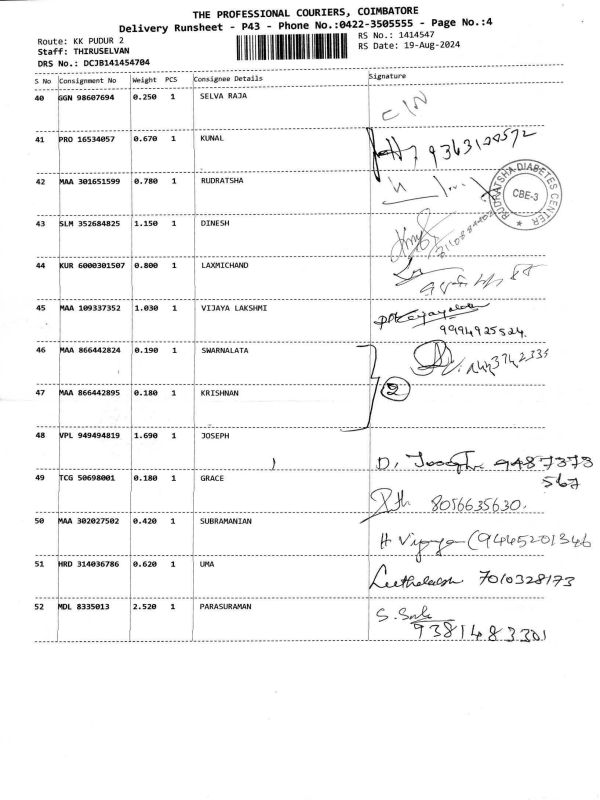 THE PROFESSIONAL COURIERS, COIMBATORE
Delivery Runsheet - P43 - Phone No.:0422-3505555 - Page No.:4
Route: KK PUDUR 2
Staff: THIRUSELVAN
DRS No.: DCJB141454704
RS No.: 1414547
RS Date: 19-Aug-2024
S No Consignment No Weight PCS Consignee Details Signature
40 GGN 98607694 0.250 1 SELVA RAJA
41 PRO 16534057 0.670 1 KUNAL
42 MAA 301651599 0.780 1 RUDRATSHA
RUDRATSHA DIABETES CENTER
CBE-3
43 SLM 352684825 1.150 1 DINESH
44 KUR 6000301507 0.800 1 LAXMICHAND
45 MAA 109337352 1.030 1 VIJAYA LAKSHMI
9994925524.
46 MAA 866442824 0.190 1 SWARNALATA
47 MAA 866442895 0.180 1 KRISHNAN
2
48 VPL 949494819 1.690 1 JOSEPH D. Joseph 9487373
567
49 TCG 50698001 0.180 1 GRACE 8056635630.
50 MAA 302027502 0.420 1 SUBRAMANIAN (9445201346
51 HRD 314036786 0.620 1 UMA 7010328173
52 MDL 8335013 2.520 1 PARASURAMAN
9381483301